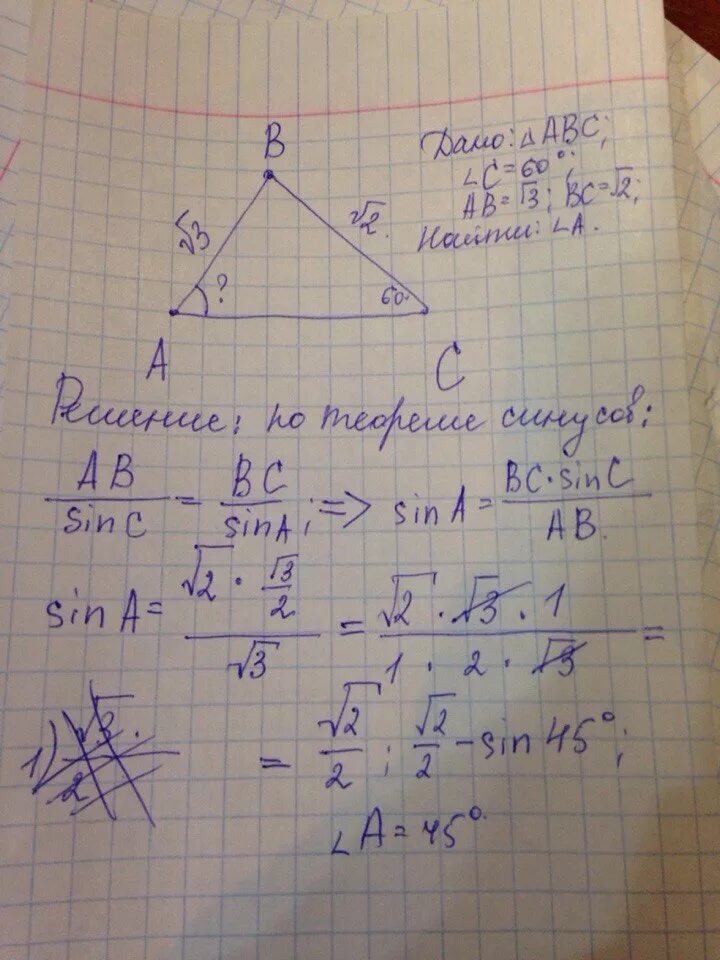 B
Дано: △ABC;
∠C=60°;
AB=√3; BC=√2;
Найти: ∠A.
√3
√2
?
60
A
C
Решение: по теореме синусов:
AB/sinC = BC/sinA; => sinA = BC·sinC/AB.
sinA = (√2 · √3/2)/√3 = (√2 · √3 · 1)/(1 · 2 · √3) =
1) √3 · 2
= √2/2; √2/2 - sin 45°;
∠A = 45°